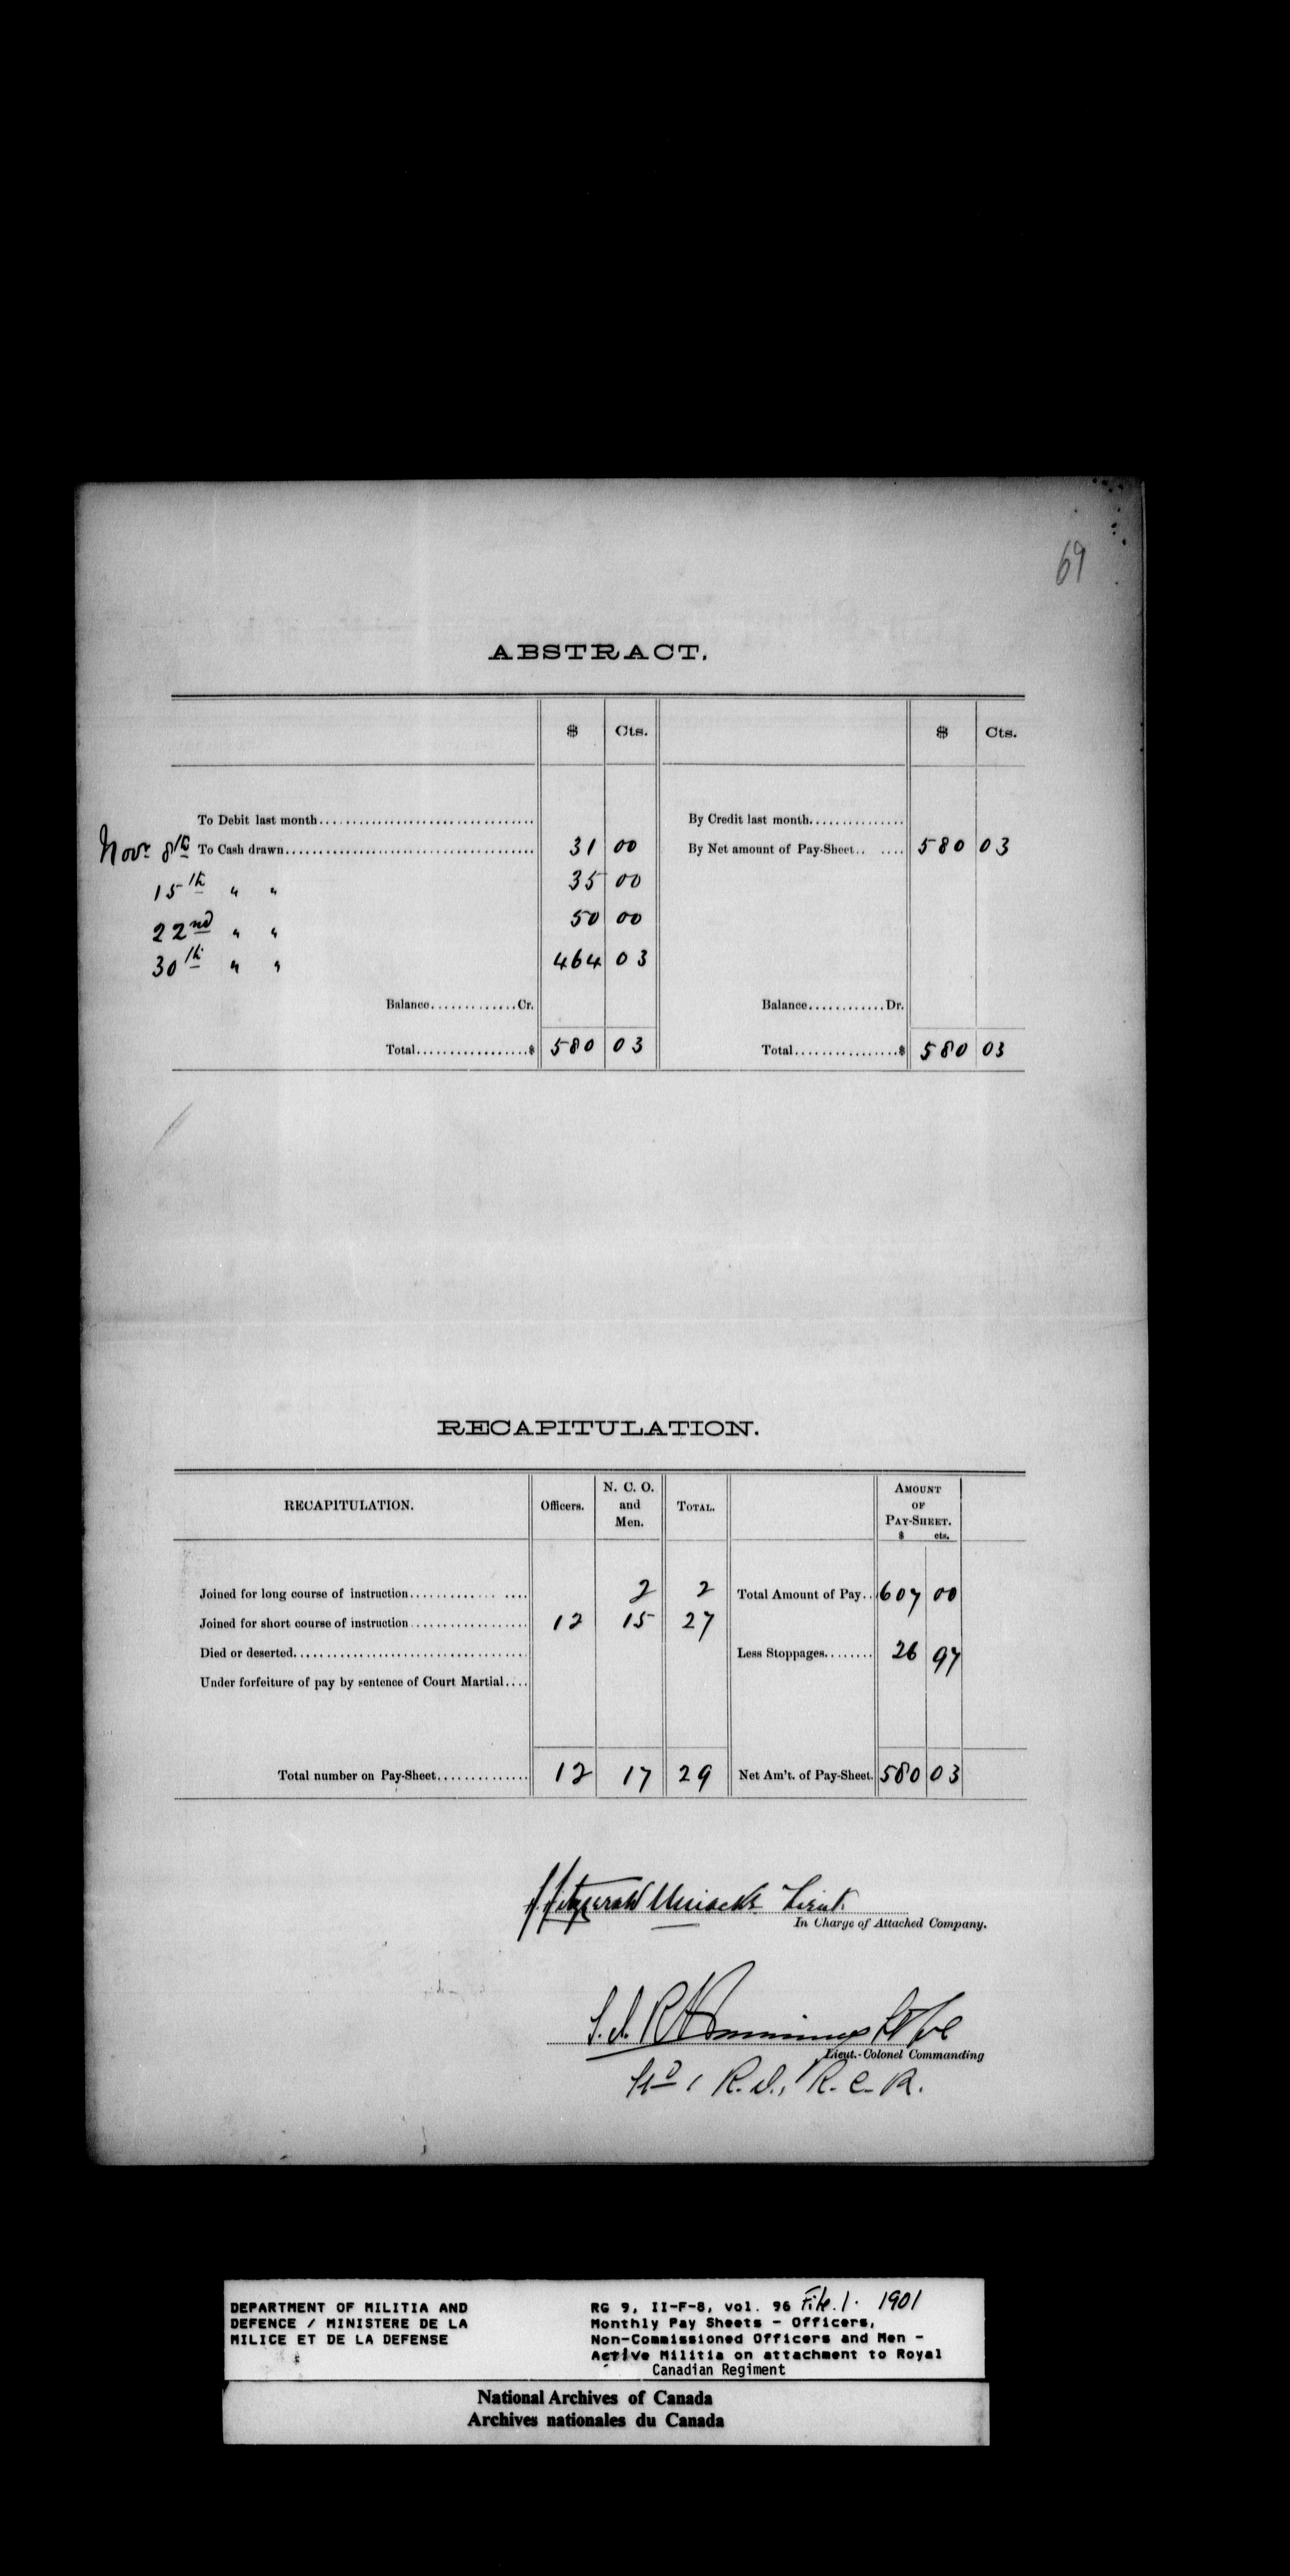 69
ABSTRACT.
$ Cts. $ Cts.
To Debit last month................................ By Credit last month..............
Novr 8th To Cash drawn..................................... 31 00 By Net amount of Pay-Sheet.. .... 580 03
15th " " 35 00
22nd " " 50 00
30th " " 464 03
Balance.............Cr. Balance............Dr.
Total.................$ 580 03 Total................$ 580 03
RECAPITULATION.
RECAPITULATION. Officers. N. C. O. and Men. TOTAL. AMOUNT OF PAY-SHEET. $ cts.
Joined for long course of instruction.............. .... 2 2 Total Amount of Pay.. 607 00
Joined for short course of instruction.................. 12 15 27
Died or deserted................................... Less Stoppages........ 26 97
Under forfeiture of pay by sentence of Court Martial....
Total number on Pay-Sheet.............. 12 17 29 Net Am't. of Pay-Sheet. 580 03
Fitzgerald Uniacke Lieut
In Charge of Attached Company.
Lieut.-Colonel Commanding
No 1 R.D., R.C.R.
DEPARTMENT OF MILITIA AND
DEFENCE / MINISTERE DE LA
MILICE ET DE LA DEFENSE
RG 9, II-F-8, vol. 96 File. 1. 1901
Monthly Pay Sheets - Officers,
Non-Commissioned Officers and Men -
Active Militia on attachment to Royal
Canadian Regiment
National Archives of Canada
Archives nationales du Canada